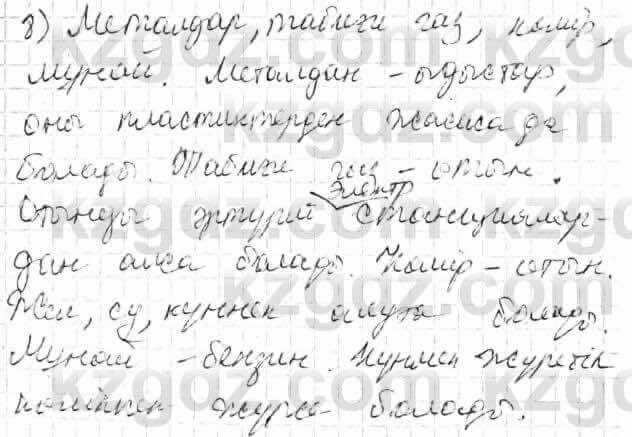 8) Металдар, табиғи газ, көмір,
мұнай. Металдан - ыдыстар,
оны пластиктерден жасаса да
болады. Табиғи газ - отын.
электр
Отынды әртүрлі станциялар-
дан алса болады. Көмір - отын.
Жел, су, күннен алуға болады.
Мұнай - бензин. Күнмен жүретін
көлікпен жүрсе болады.
kzgdz.com